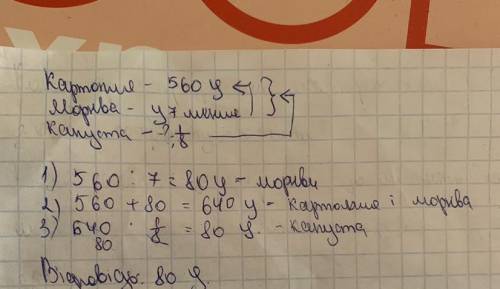 Картопля - 560 ц
Морква - у 7 менше
Капуста - ? 1/8
1) 560 : 7 = 80 ц - моркви
2) 560 + 80 = 640 ц - картопля і морква
3) 640 : 1/8 = 80 ц. - капуста
80
Відповідь: 80 ц